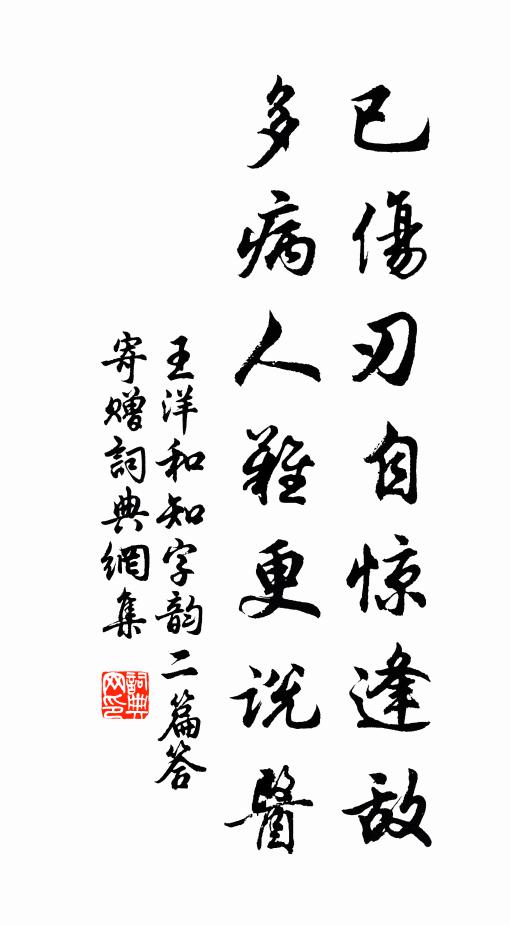 已傷刃自惊逢敌
多病人難更说醫
王洋和知字韵二篇答
寄赠詞典網集
詞典网印